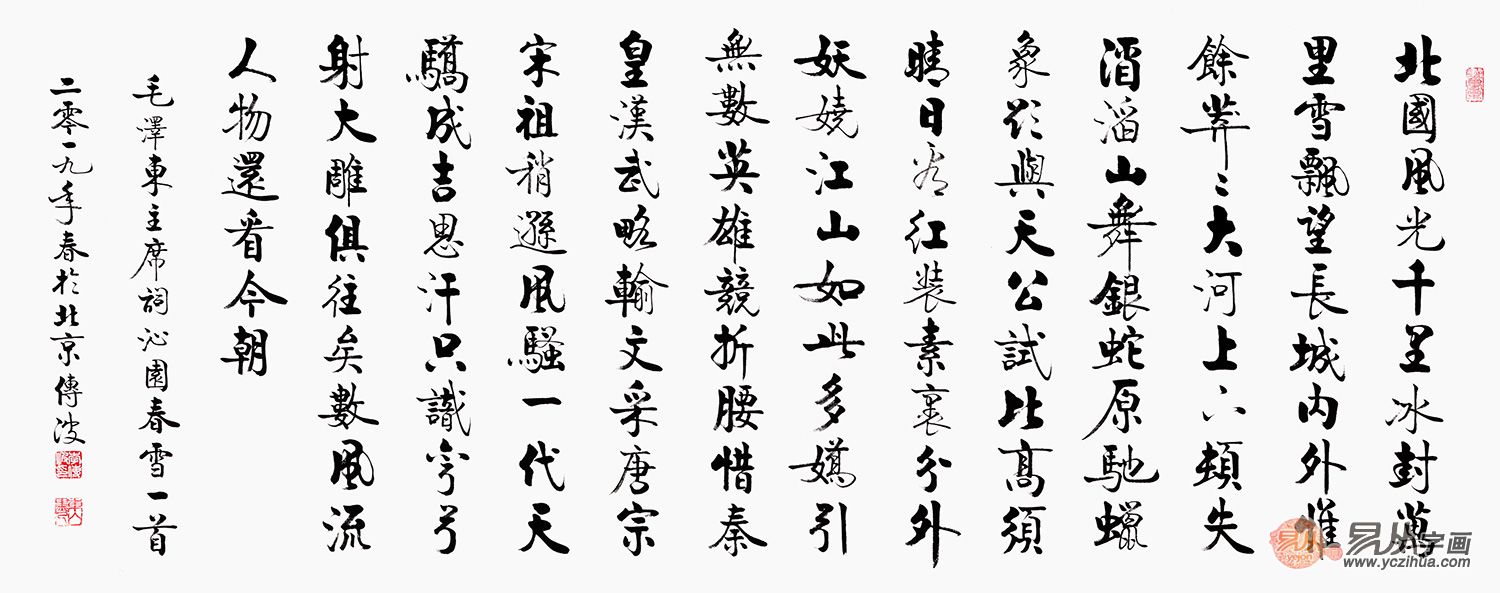 北國風光千里冰封萬
里雪飄望長城内外惟
餘莽〻大河上下頓失
滔滔山舞銀蛇原馳蠟
象欲與天公試比高須
晴日看紅裝素裹分外
妖嬈江山如此多嬌引
無數英雄競折腰惜秦
皇漢武略輸文采唐宗
宋祖稍遜風騷一代天
驕成吉思汗只識彎弓
射大雕俱往矣數風流
人物還看今朝
毛澤東主席詞沁園春雪一首
二零一九年春於北京傳波
易从字画
www.yczihua.com